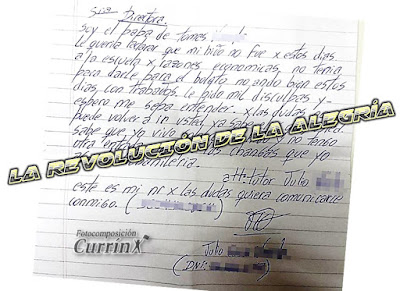 Sra Directora
Soy el papa de tomas
le queria aclarar que mi hijo no fue x estos dias
a la escuela x razones economicas, no tenia
para darle para el boleto no ando bien estos
dias, con trabajos le pido mil disculpas y
espero me sepa entender. x las dudas
puede volver a ir usted ya
sabe que yo vivo
otra
changas que yo
LA REVOLUCIÓN DE LA ALEGRÍA
att-tutor Julio
este es mi nr x las dudas quiera comunicarse
conmigo. (
Fotocomposición
CurrinX
Julio
(DNI: